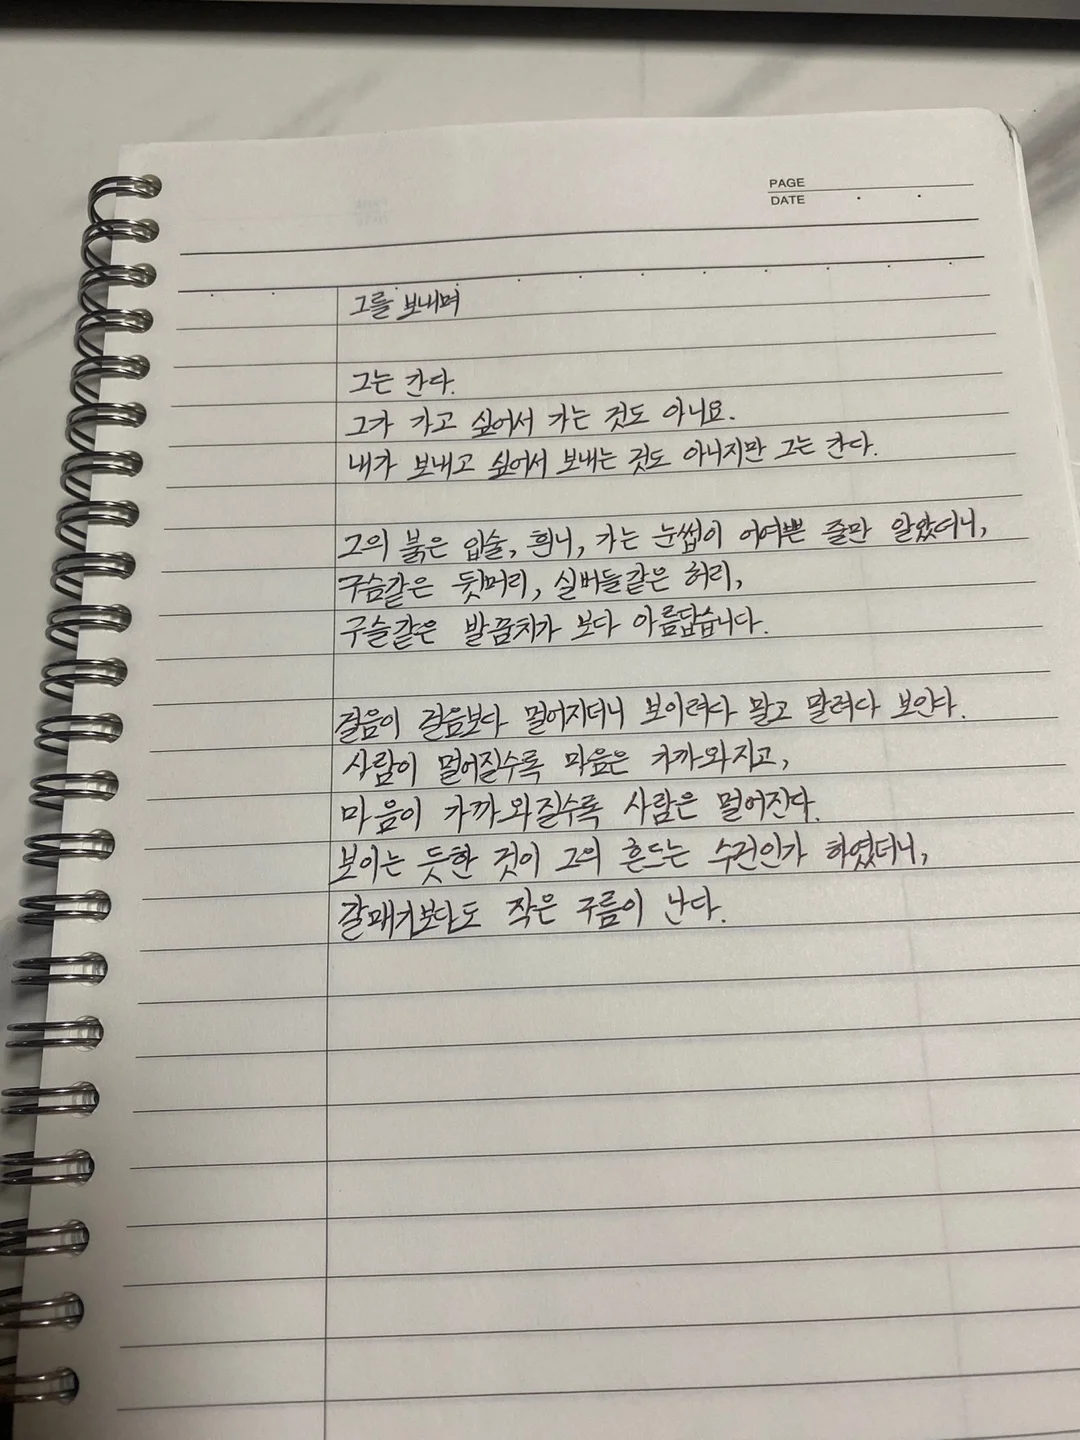 PAGE
DATE
그를 보내며
그는 간다.
그가 가고 싶어서 가는 것도 아니요.
내가 보내고 싶어서 보내는 것도 아니지만 그는 간다.
그의 붉은 입술, 흰니, 가는 눈썹이 어여쁜 줄만 알았더니,
구슴같은 뒷머리, 실버들같은 허리,
구슬같은 발꿈치가 보다 아름답습니다.
걸음이 걸음보다 멀어지더니 보이려다 말고 말려다 보인다.
사람이 멀어질수록 마음은 가까와지고,
마음이 가까와질수록 사람은 멀어진다.
보이는 듯한 것이 그의 흔드는 수건인가 하였더니,
갈매기보다도 작은 구름이 난다.